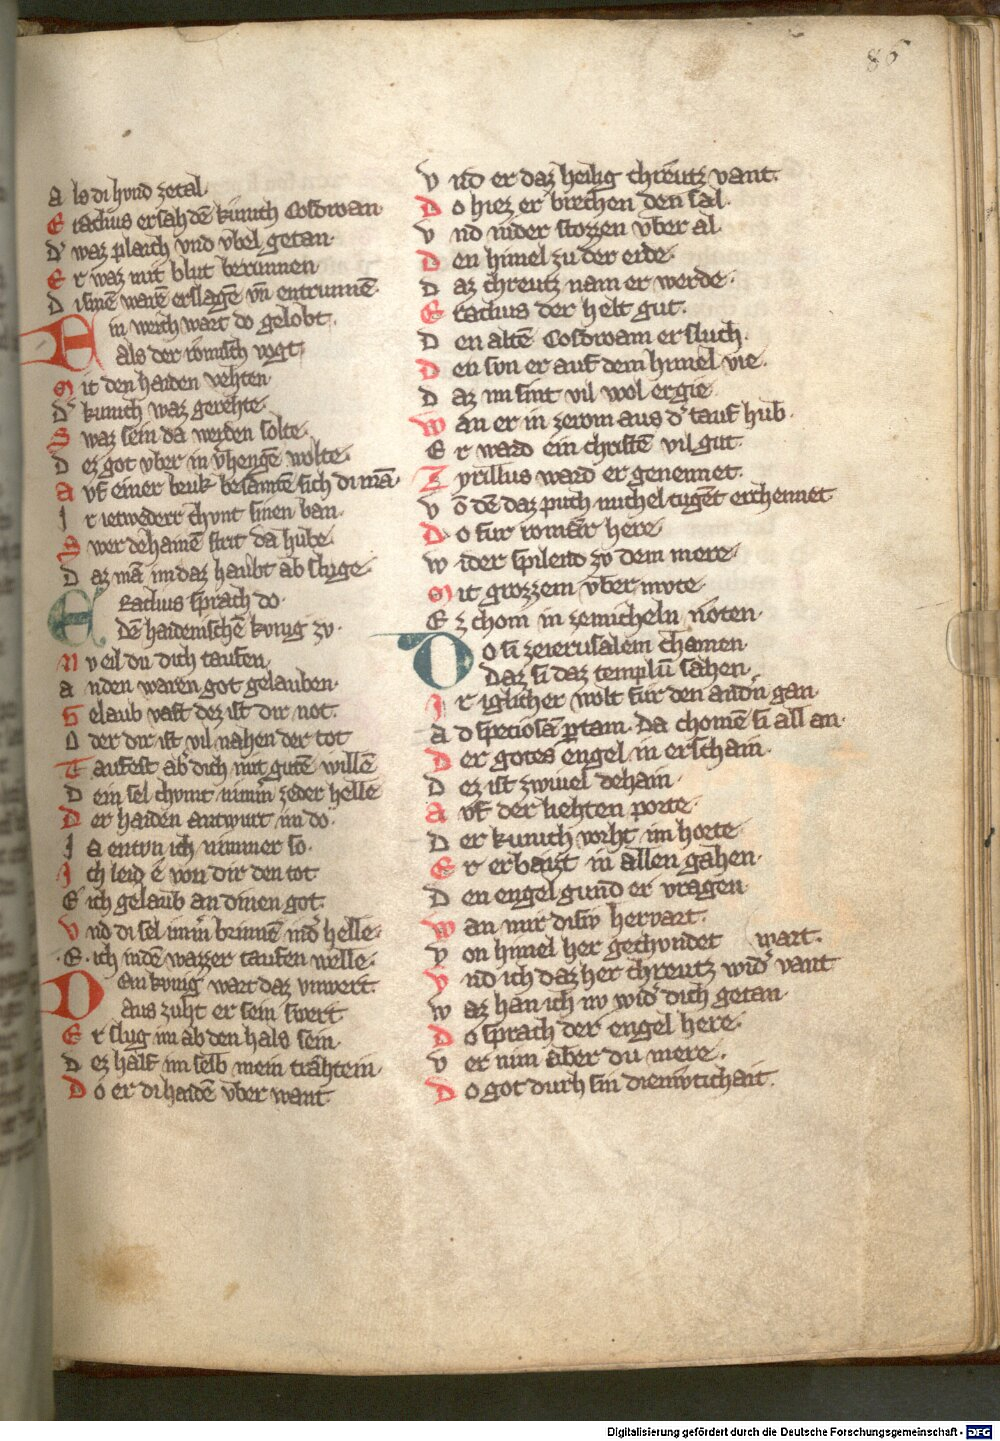 86
Als di hvnd zetal.
Eraclius ersah dē kunich Cosdroan
Dˢ waz plaich vnd vbel getan.
Er waz mit blut berunnen
Di sinē warē erslagē vn̄ entrunnē.
Ein weich wart do gelobt.
als der romisch vogt
Mit den haiden vehten
Dˢ kunich waz gerehte.
Swaz sein da werden solte.
Dez got vber in vˢhengē wolte.
Avf einer bruk besamtē sich di mā
Ir ietwederr chvnt sinen ban.
Swer dehainē strit da hube.
Daz mā im daz haubt ab slvge.
Eraclius sprach do.
Dē haidenischē kvnig zv.
Nv eil du dich taufen
anden waren got gelauben.
Gelaub vast dez ist dir not.
Oder dir ist vil nahen der tot
Taufest abˢ dich mit gutē willē
Dein sel chvmt nimmˢ zeder helle
Der haiden antwurt im do.
Ja entvn ich nimmer so.
Ich leid e von dir den tot
E ich gelaub an dinen got.
Vnd di sel immˢ brinnē indˢ helle.
E. ich indē wazzer taufen welle.
Dem kvnig wart daz vnwert.
aus zuht er sein swert
Er slug im ab den hals sein.
Dez half im selb mein trähtein.
Do er di haidē vber want.
Vnd er daz heilig chreutz vant.
Do hiez er brechen den sal.
Vnd nider stozzen vber al.
Den himel zu der erde.
Daz chreutz nam er werde.
Eraclius der helt gut.
Den altē Cosdroam er sluch.
Den svn er auf dem himel vie.
Daz im sint vil wol ergie.
Wan er in zerom aus dˢ tauf hub.
Er ward ein christē vil gut.
Zyrillus ward er genennet.
Vō dē daz puch michel tugēt erchennet
Do fur romær here.
wider spilend zv dem mere.
Mit grozzem vber mvte.
Ez chom in zemicheln nöten.
Do si zeierusalem chamen.
Daz si daz templū sahen.
Ir iglicher wolt fur den andˢn gan.
Ad speciosā portam. Da chomē si all an.
Der gotes engel in erschain.
Dez ist zwiuel dehain.
Avf der liehten porte.
Der kunich vorht im horte.
Er erbaizt in allen gahen.
Den engel gund er vragen.
wan mir disiv hervart.
Von himel her gechvndet wart.
Vnd ich daz her chreutz widˢ vant
waz han ich nv widˢ dich getan.
Do sprach der engel here.
Vernim aber du mere.
Do got durh sin diemvtichait.
Digitalisierung gefördert durch die Deutsche Forschungsgemeinschaft - DFG